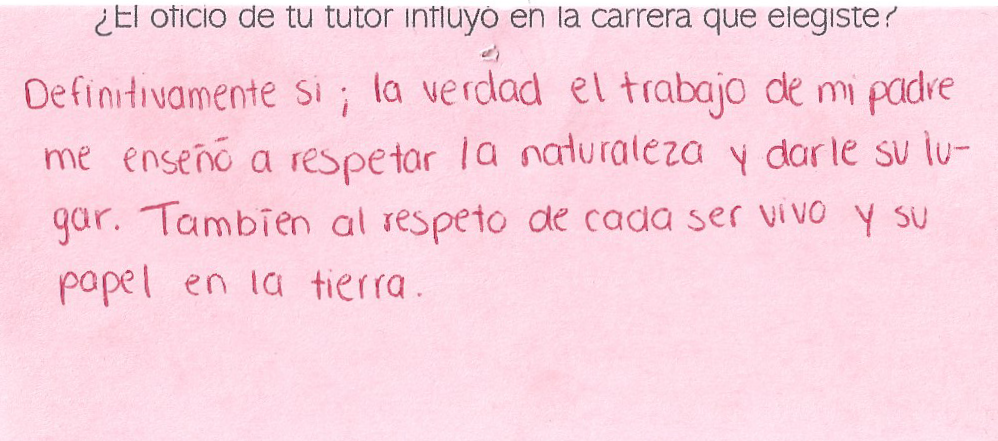 ¿El oficio de tu tutor influyó en la carrera que elegiste?
Definitivamente si; la verdad el trabajo de mi padre
me enseñó a respetar la naturaleza y darle su lu-
gar. También al respeto de cada ser vivo y su
papel en la tierra.